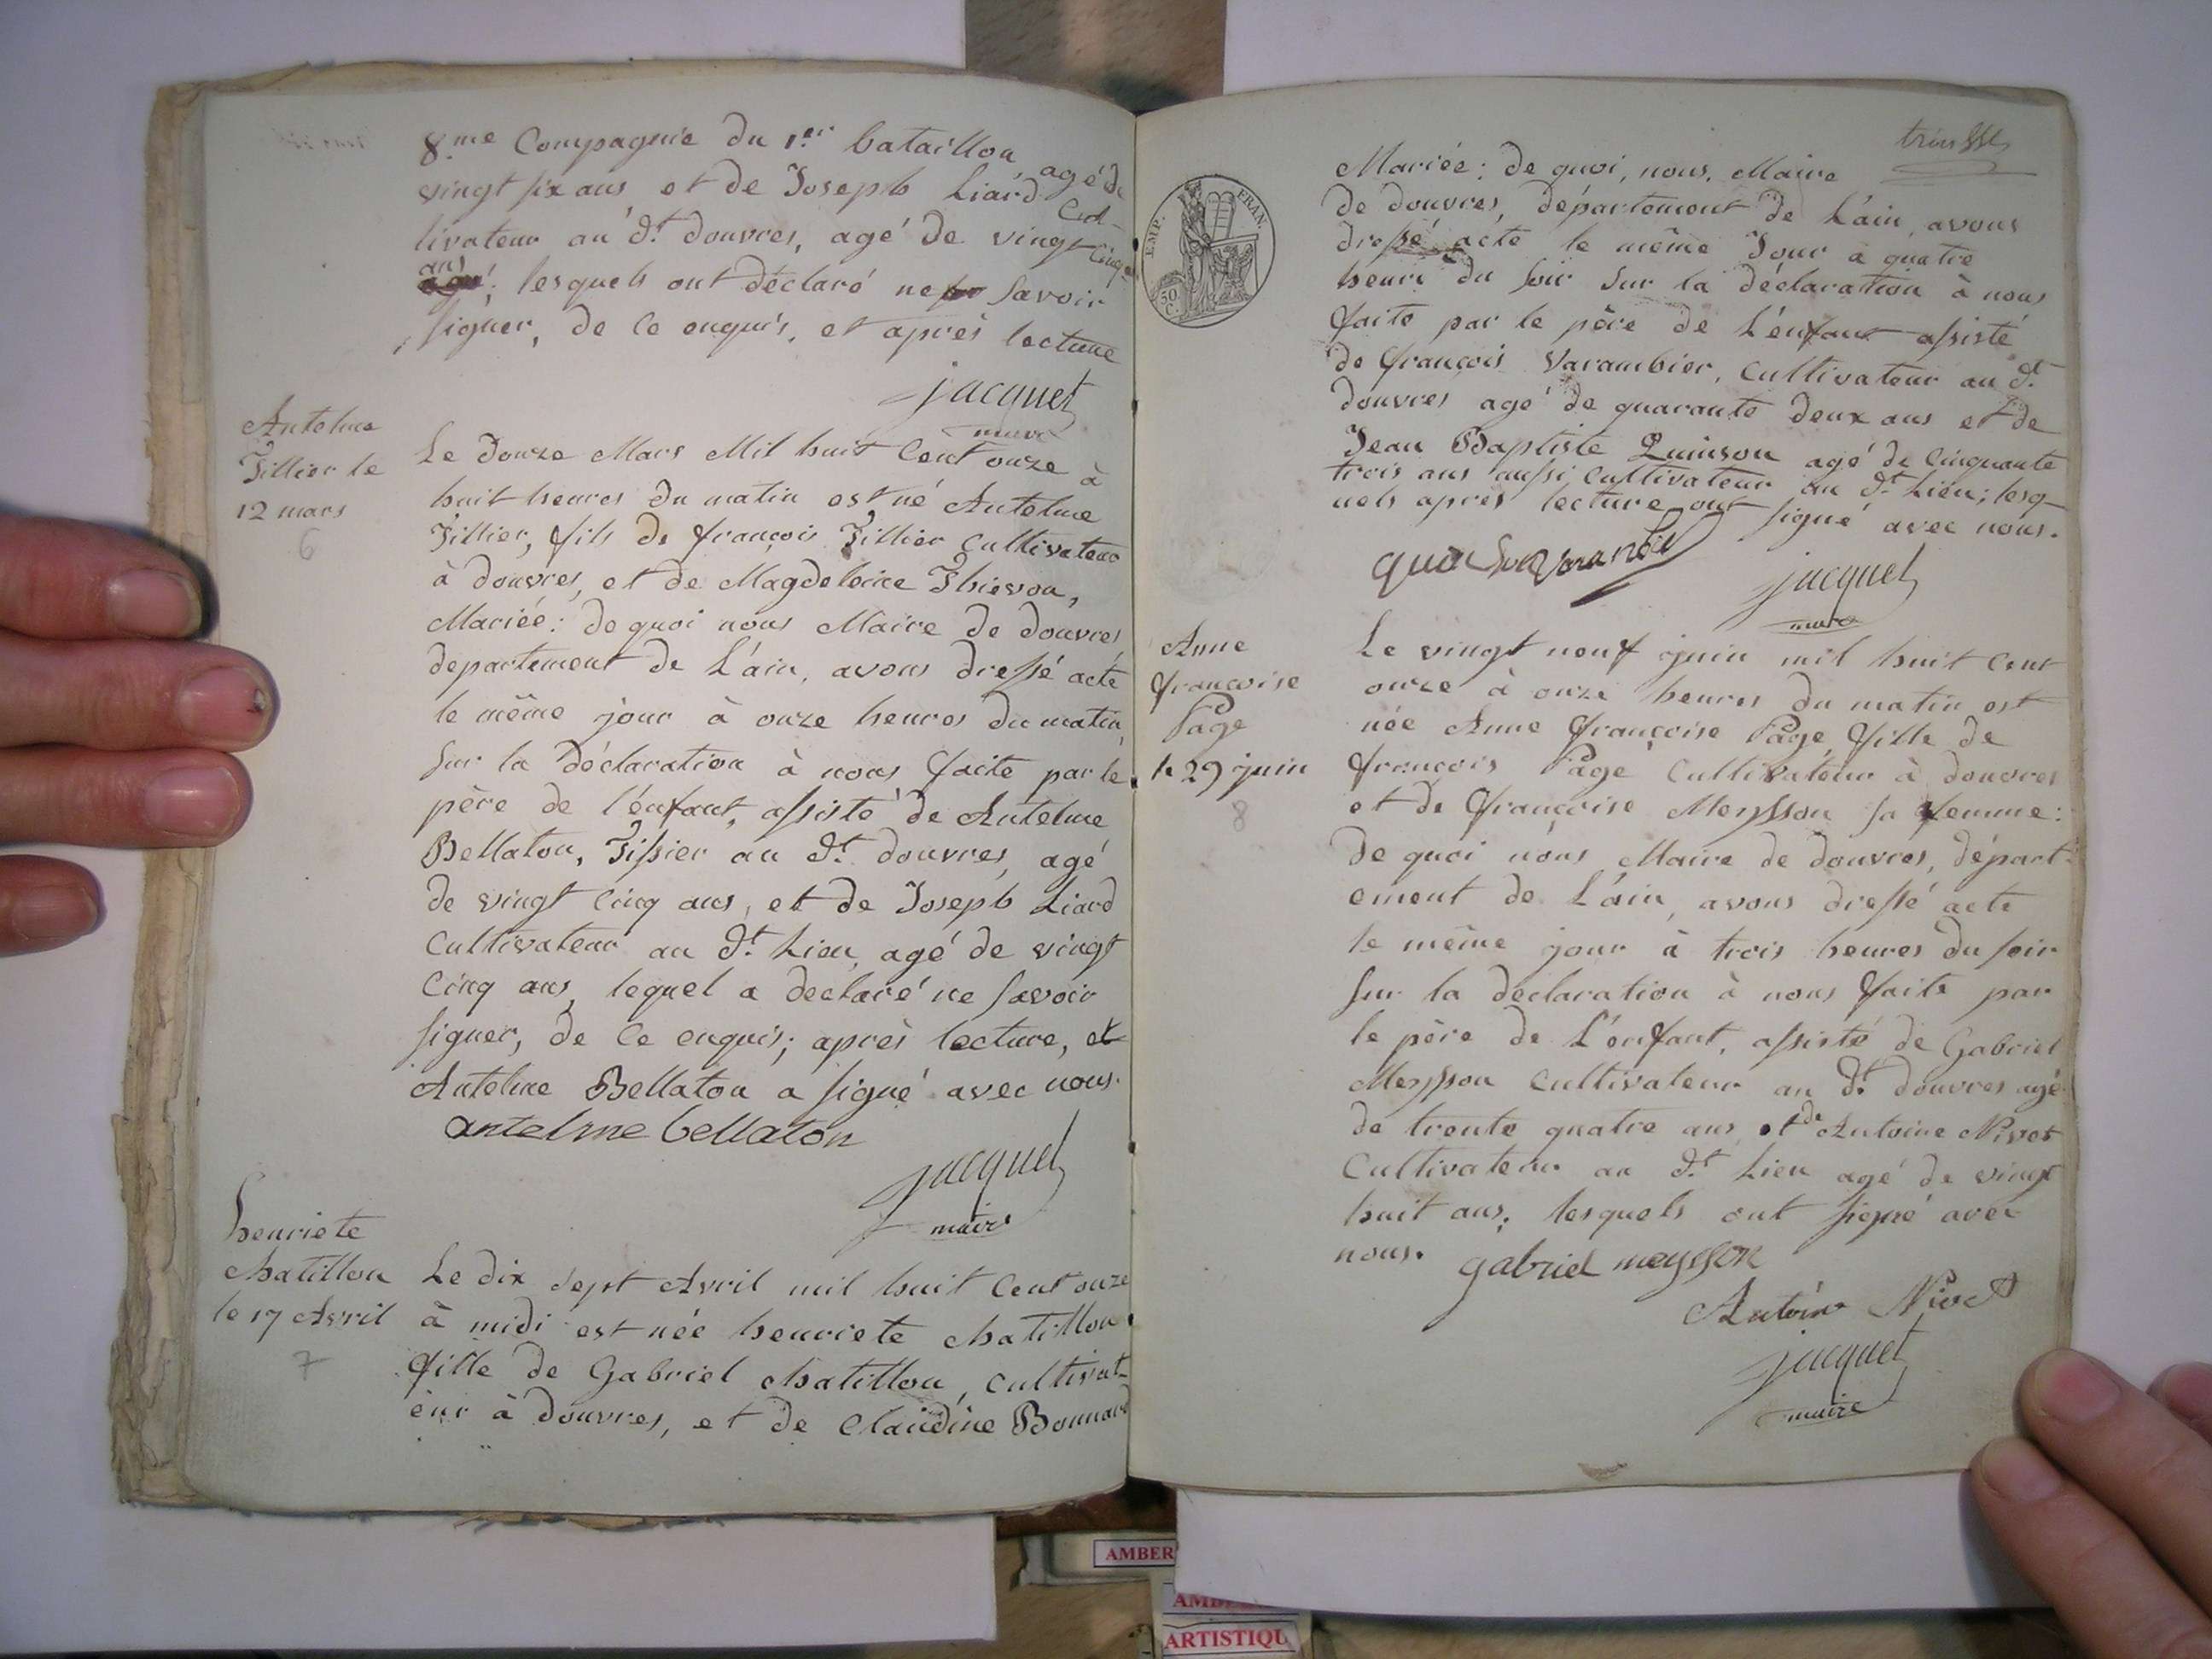 8.me Compagnie du 1.er bataillon agé de
vingt six ans, et de Joseph Liard Cul-
tivateur au d.t douvres, agé de vingt cinq
ans; lesquels ont déclaré ne savoir
signer, de ce enquis, et après lecture
jacquet
maire
Antelme
Tillier le
12 mars
6
Le Douze Mars Mil huit Cent onze à
huit heures du matin est né Antelme
Tillier, fils de françois Tillier Cultivateur
à douvres, et de Magdeleine Thievon,
Mariée: de quoi nous Maire de douvres,
departement de L'ain, avons dressé acte
le même jour à onze heures du matin,
sur la déclaration à nous faite par le
père de l'énfant, assisté de Antelme
Bellaton, Tissier au d.t douvres, agé
de vingt cinq ans, et de Joseph Liard
Cultivateur au d.t Lieu, agé de vingt
Cinq ans, lequel a declaré ne savoir
signer, de ce enquis; après lecture, et
Antelme Bellaton a signé avec nous.
antelme bellaton
jacquet
maire
henriete
chatillon
le 17 Avril
7
Le dix sept Avril mil huit Cent onze
à midi est née henriete chatillon
fille de Gabriel chatillon, cultivat-
eur à douvres, et de Claudine Bonnard
EMP. FRAN.
50 C.
Mariée: de quoi, nous, Maire
de douvres, département de L'ain, avons
dressé acte le même Jour a quatre
heure du soir sur la déclaration à nous
faite par le père de L'énfant assisté
de françois Varambier, Cultivateur au d.t
douvres agé de quarante deux ans et de
Jean Baptiste Quinson agé de Cinquante
trois ans aussi Cultivateur au d.t Lieu; lesq-
uels après lecture ont signé avec nous.
jacquet
maire
Anne
françoise
Page
le 29 juin
8
Le vingt neuf juin mil huit Cent
onze à onze heures du matin est
née Anne françoise Page, fille de
françois Page Cultivateur à douvres
et de françoise Meysson sa femme:
De quoi nous Maire de douvres, départ-
ement de L'ain, avons dressé acte
le même jour à trois heures du soir
sur la déclaration à nous faite par
le père de L'énfant, assisté de Gabriel
Meysson Cultivateur au d.t douvres agé
de trente quatre ans et de Antoine Nivet
Cultivateur au d.t Lieu agé de vingt
huit ans; lesquels ont signé avec
nous.
gabriel meysson
Antoine Nivet
jacquet
maire
AMBER
ARTISTIQU